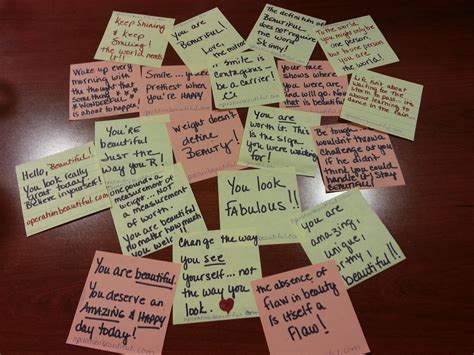 Keep Shining
& keep
Smiling!
the world needs
it!
You are
BEAUTIFUL!
Love, the mirror
The definition of
BEAUTIFUL
does not require
the word
Skinny!
To the world
you might only be
one person
but to one person
you are
the world!
Wake up every
morning with
the thought that
something
WONDERFUL
is about to happen!
Smile... you're
prettiest
when
you're HAPPY
operationbeautiful.com
A smile is
contagious -
be a carrier!
Your face
shows where
you were, are,
and will go. Now
that is beautiful
Life isn't about
waiting for the
storm to pass... it's
about learning to
dance in the rain...
Hello,
"Beautiful!"
You look
great today!
Believe in yourself!
operationbeautiful.com
YOU'RE
beautiful
Just the
way you R!
Weight doesn't
define
BEAUTY!
You are
worth it. This
is the sign
you were waiting
for!
Be tough...
wouldn't throw a
challenge at you
if he didn't
think you could
handle it! Stay
Beautiful!
one pound = a
measurement of
weight... not
a measurement
of worth.
You are beautiful
no matter how much
you weigh!!
You look
FABULOUS!!
You are
amazing,
unique!
beautiful!!
You are beautiful.
You deserve an
AMAZING & HAPPY
day today!
operationbeautiful.com
Change the way
you see
yourself... not
the way you
look
the absence of
flaw in beauty
is itself a
flaw!